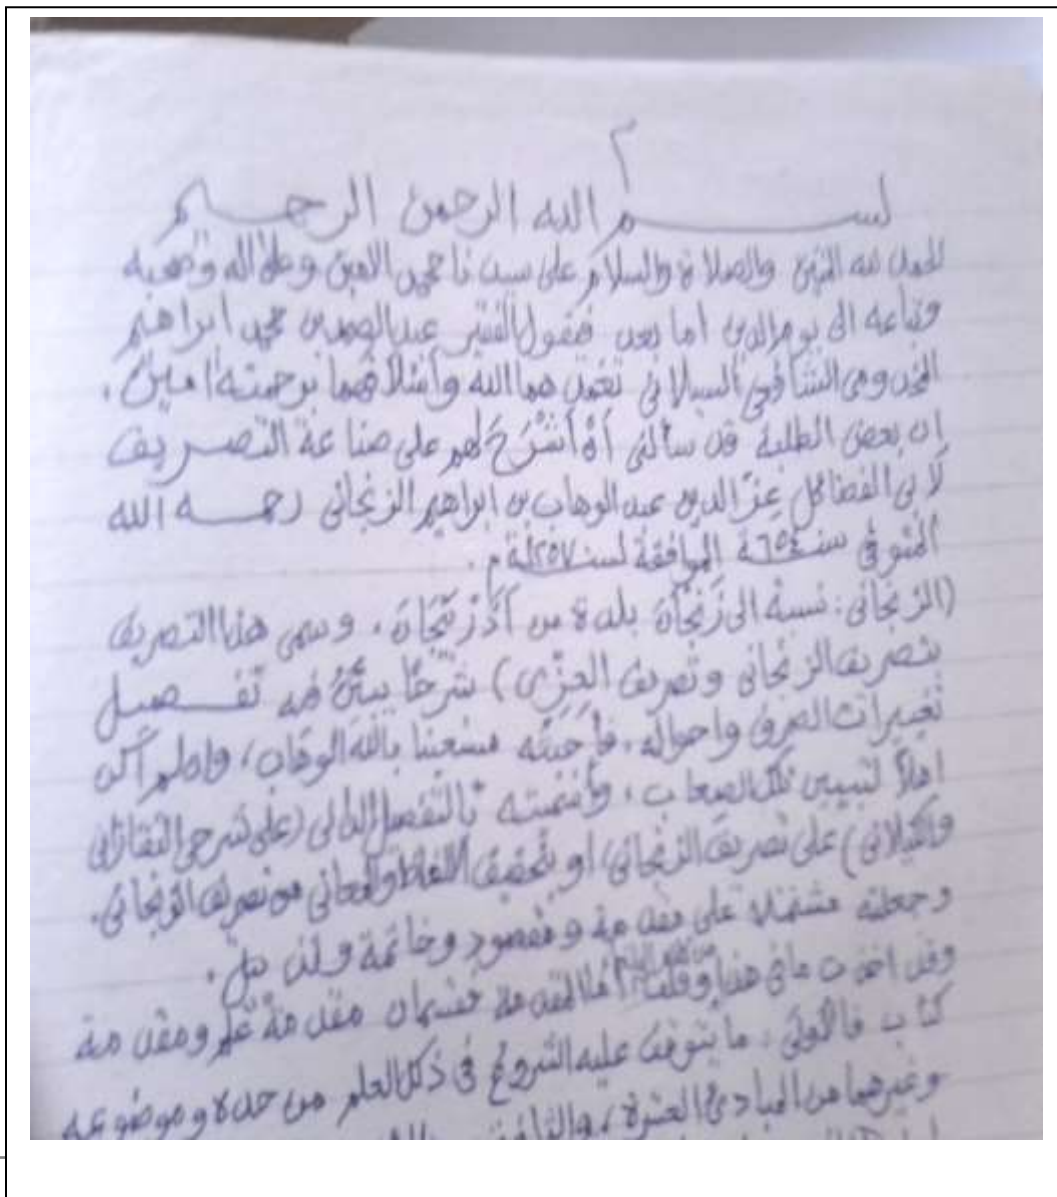 بسم الله الرحمن الرحيم
الحمد لله المتين والصلاة والسلام على سيدنا محمد الامين وعلى اله وصحبه
وتباعه الى يوم الدين اما بعد فيقول الفقير عبد الصمد بن محمد ابراهيم
المخدومي الشافعي السيلاني تغمدهما الله وأمثالهما برحمته امين .
ان بعض الطلبة قد سألني أن أشرح لهم على صناعة التصريف
لأبي الفضائل عز الدين عبد الوهاب بن ابراهيم الزنجاني رحمه الله
المتوفى سنة ٦٥٤ة الموافقة لسنة ١٢٥٧م .
(الزنجاني: نسبة الى زَنْجَانَ بلدة من أَذَرْبَيْجَانَ ، وسمى هذا التصريف
بتصريف الزنجاني وتصريف العِزِّي) شرحًا يبيّن فيه تفصيل
تغييرات الصرف واحواله . فأجبته مستعينا بالله الوهاب ، وان لم أكن
اهلاً لتبيين تلك الصعاب ، وأسميته بالتفصيل الدانى (على شرحي التفتازاني
والكيلاني) على تصريف الزنجاني، او بتحقيق الالفاظ والمعاني من تصريف الزنجاني.
وجعلته مشتملا على مقدمة ومقصود وخاتمة
وقد اخذت ما فى هذا وقلت أما المقدمة فقسمان مقدمة علم ومقدمة
كتاب فالأولى : ما يتوقف عليه الشروع فى ذلك العلم من حده وموضوعه
وغيرهما من المبادئ العشرة ، والثانية